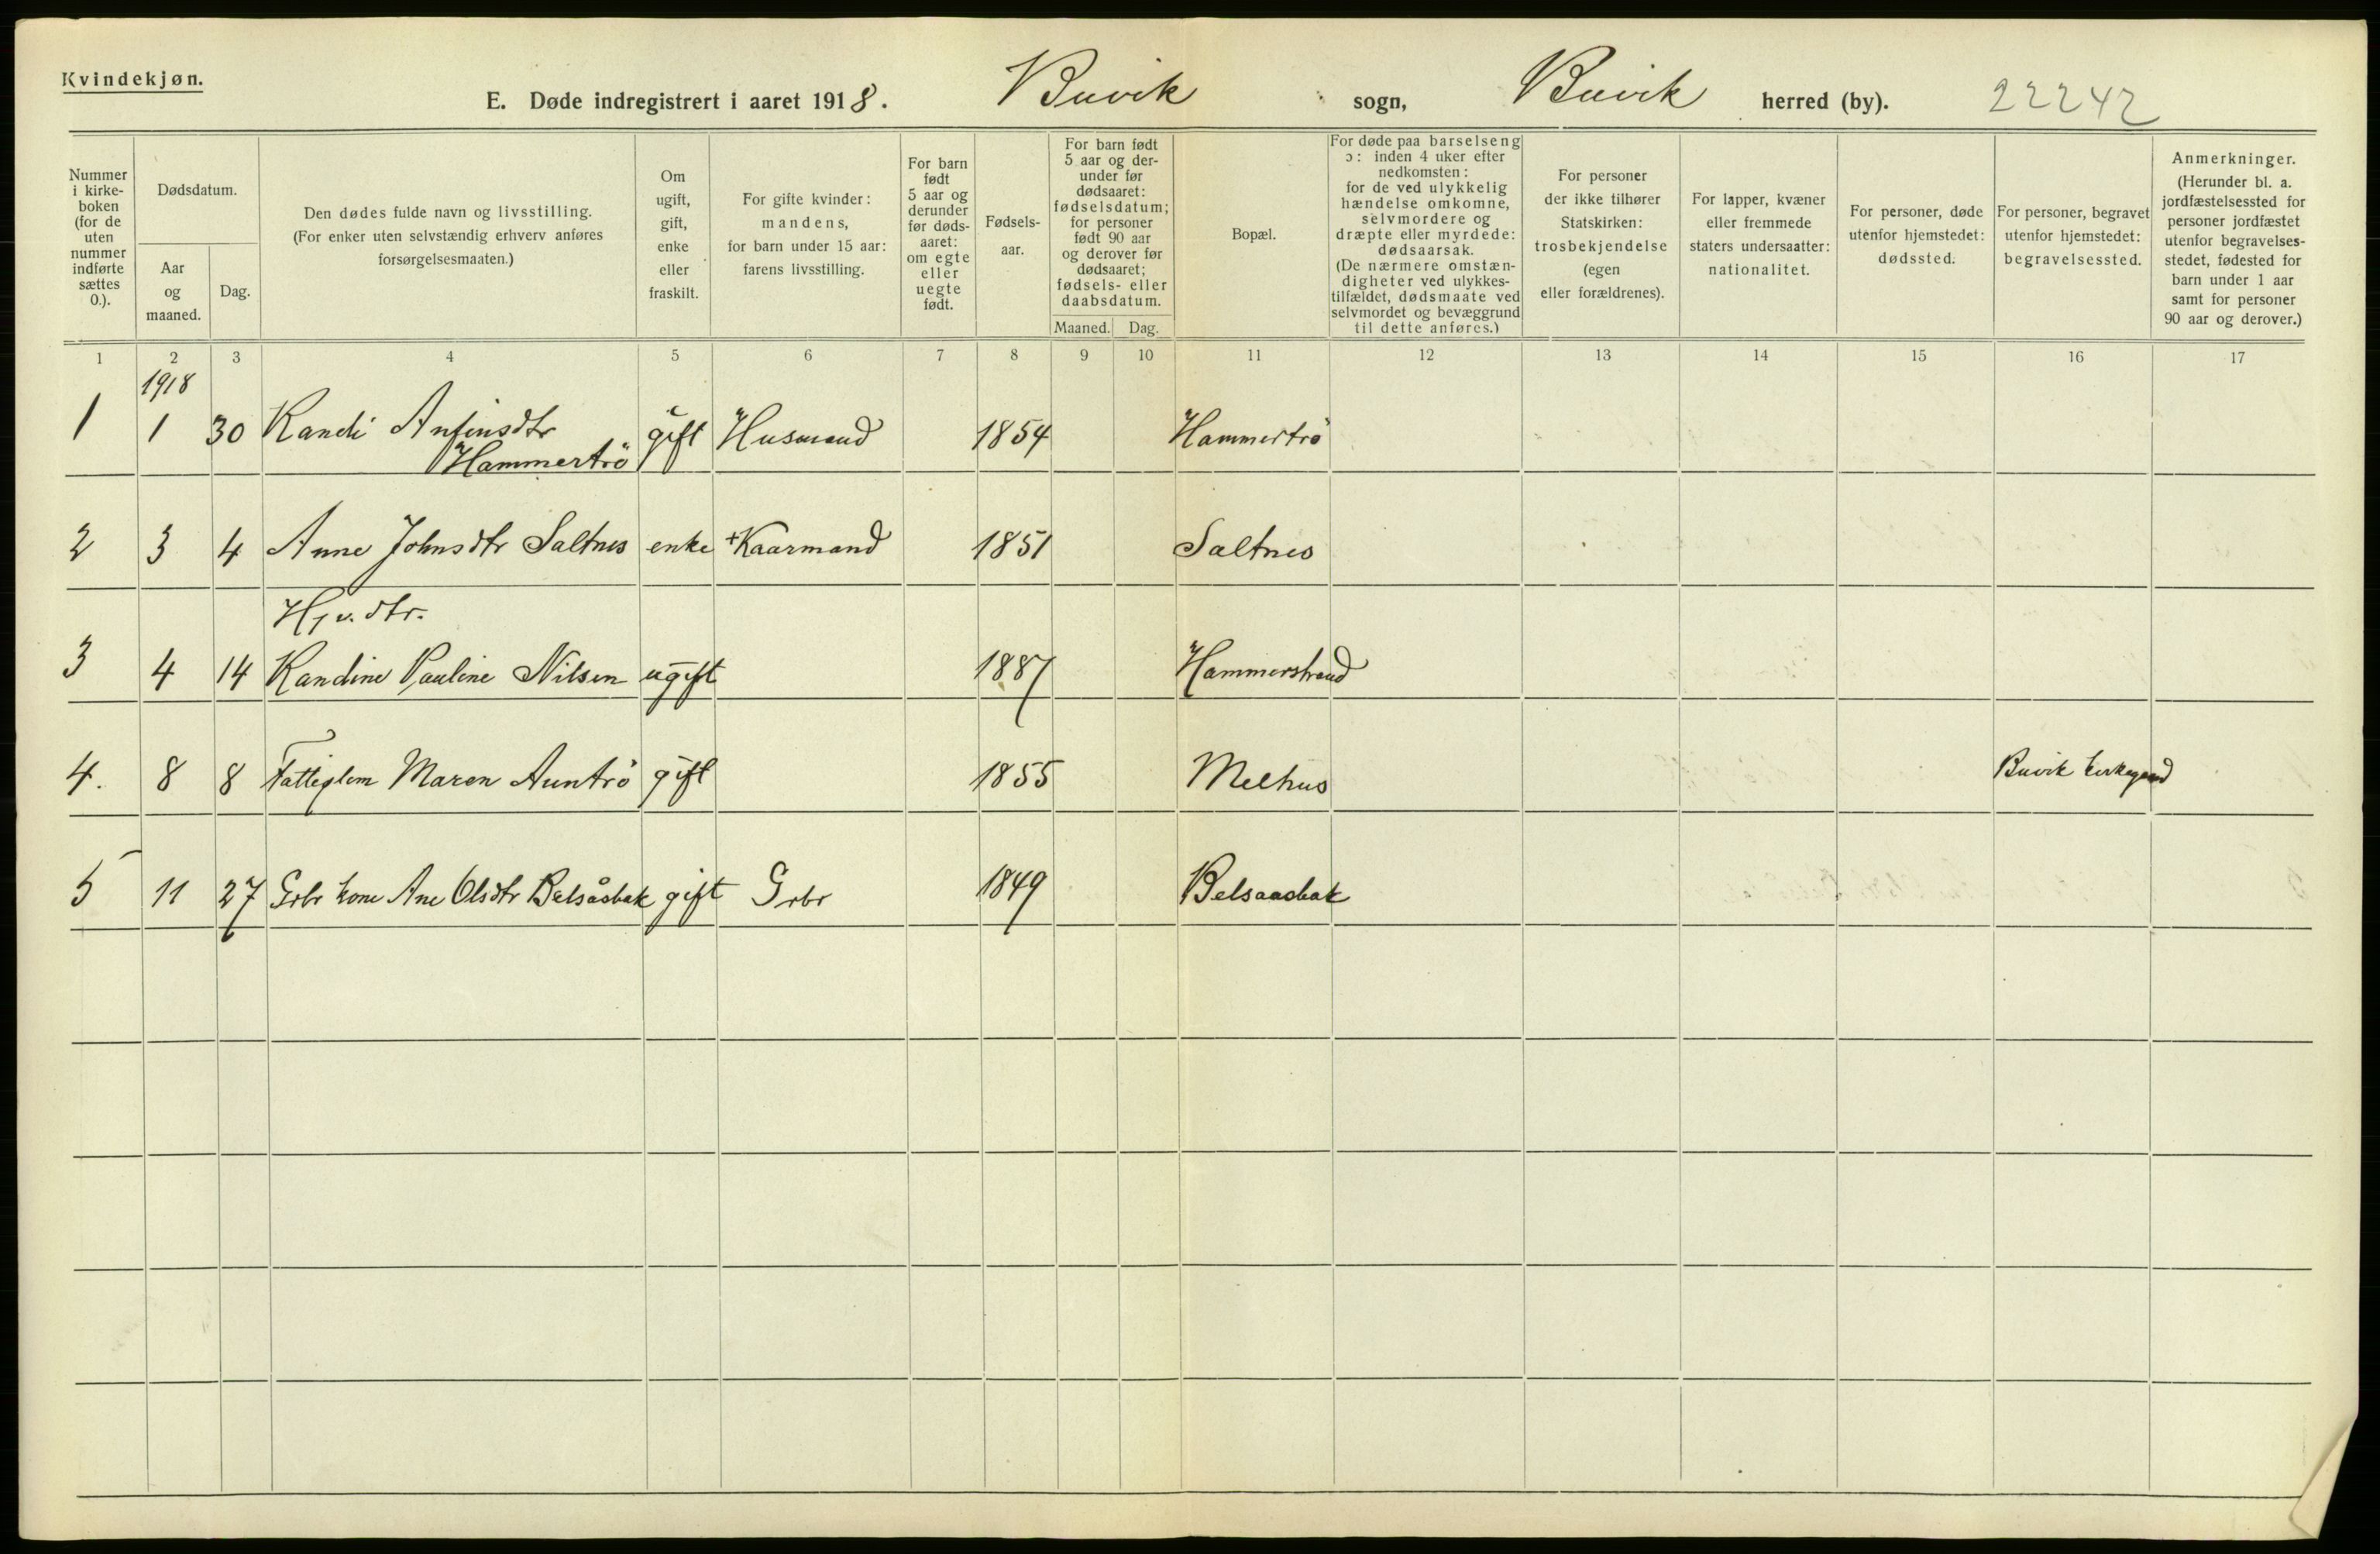 Kvindekjøn.
E. Døde indregistrert i aaret 1918. Buvik sogn, Buvik herred (by). 22242
Nummer i kirke- boken (for de uten nummer indførte sættes 0.).
Dødsdatum.
Aar og maaned.
Dag.
Den dødes fulde navn og livsstilling.
(For enker uten selvstændig erhverv anføres
forsørgelsesmaaten.)
Om ugift, gift, enke eller fraskilt.
For gifte kvinder: mandens, for barn under 15 aar: farens livsstilling.
For barn født 5 aar og derunder før døds- aaret: om egte eller uegte født.
Fødsels- aar.
For barn født 5 aar og der- under før dødsaaret: fødselsdatum; for personer født 90 aar og derover før dødsaaret; fødsels- eller daabsdatum.
Maaned. Dag.
Bopæl.
For døde paa barselseng ɔ: inden 4 uker efter nedkomsten: for de ved ulykkelig hændelse omkomne, selvmordere og dræpte eller myrdede: dødsaarsak. (De nærmere omstæn- digheter ved ulykkes- tilfældet, dødsmaate ved selvmordet og bevæggrund til dette anføres.)
For personer der ikke tilhører Statskirken: trosbekjendelse (egen eller forældrenes).
For lapper, kvæner eller fremmede staters undersaatter: nationalitet.
For personer, døde utenfor hjemstedet: dødssted.
For personer, begravet utenfor hjemstedet: begravelsessted.
Anmerkninger. (Herunder bl. a. jordfæstelsessted for personer jordfæstet utenfor begravelses- stedet, fødested for barn under 1 aar samt for personer 90 aar og derover.)
1 2 3 4 5 6 7 8 9 10 11 12 13 14 15 16 17
1918
1 1 30 Randi Anfinsdtr gift Husmand 1854 Hammertrö
Hammertrö
2 3 4 Anne Johnsdtr Saltnes enke +Kaarmand 1851 Saltnes
Hjv. dtr.
3 4 14 Randine Pauline Nilsen ugift 1887 Hammerstrand
4. 8 8 Fattiglem Maren Auntrö gift 1855 Melhus Buvik kirkegaard
5 11 27 Grbr kone Ane Olsdtr Belsåsbak gift Grbr 1849 Belsaasbak